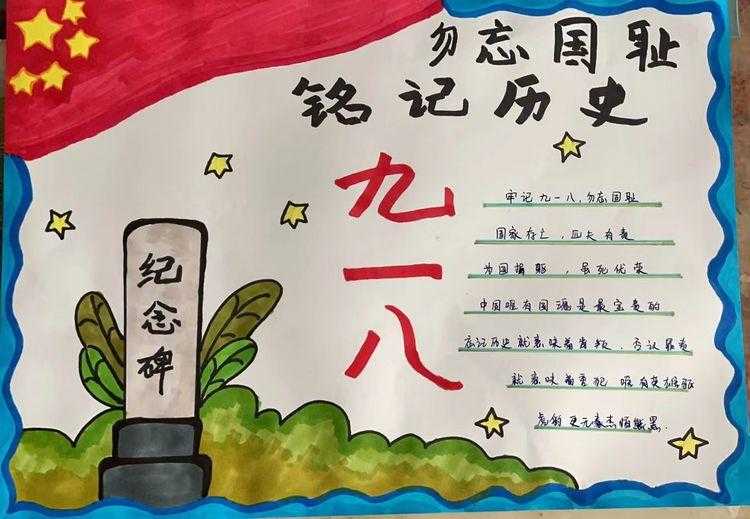 勿忘国耻
铭记历史
九一八
纪念碑
牢记九一八,勿忘国耻
国家存亡,匹夫有责
为国捐躯,虽死优荣
中国唯有国魂是最宝贵的
忘记历史就意味着背叛,否认罪责
就意味着重犯 唯有英雄驱
虎豹 更无豪杰怕熊罴.